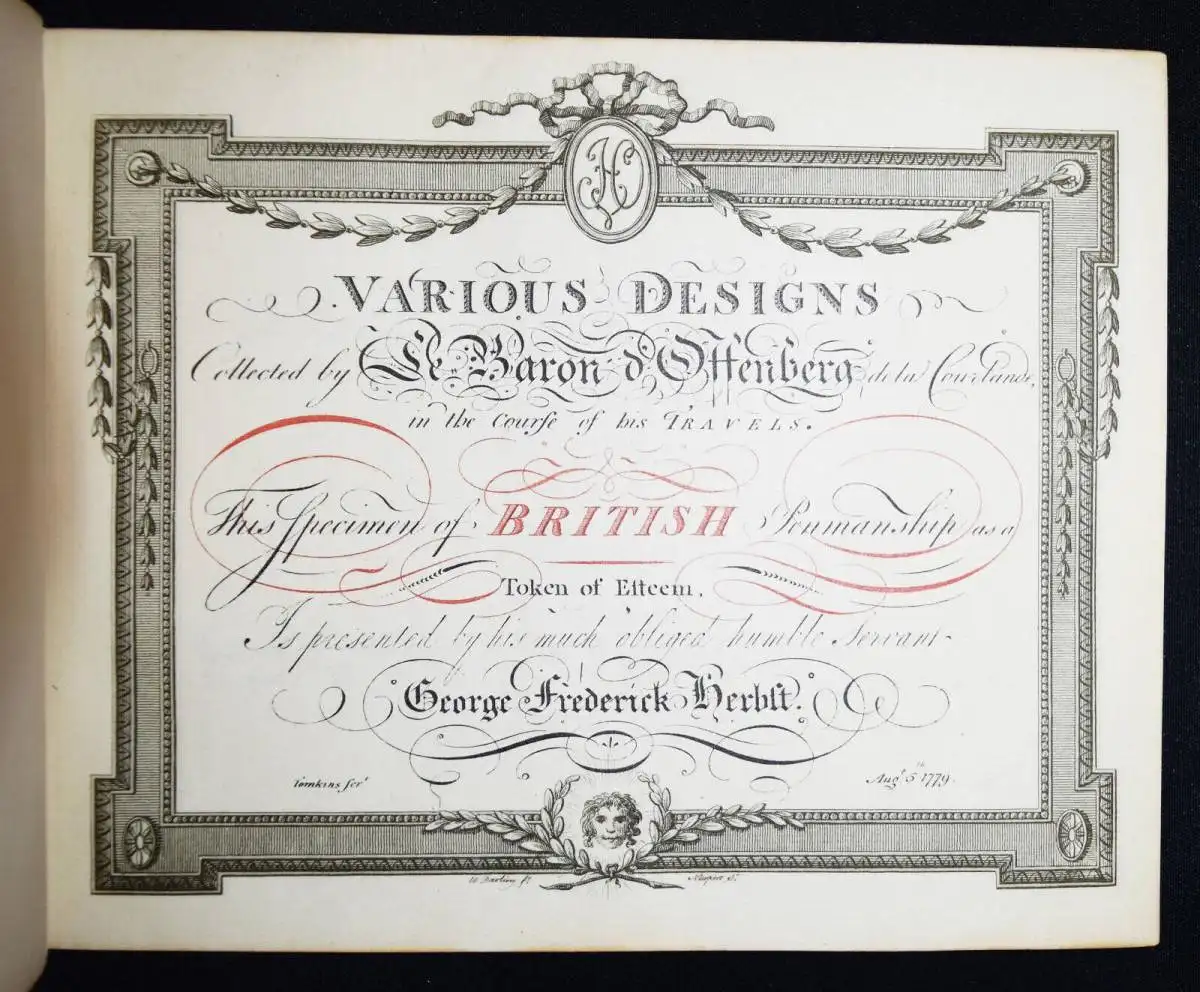 VARIOUS DESIGNS
Collected by Le Baron d'Offenberg de la Courlande,
in the Courſe of his TRAVELS.
This Specimen of BRITISH Penmanship as a
Token of Eſteem,
Is presented by his much obliged humble Servant
George Frederick Herbſt.
Tomkins ſcr.t
Aug.t 5.th 1779.
W. Darling f.t